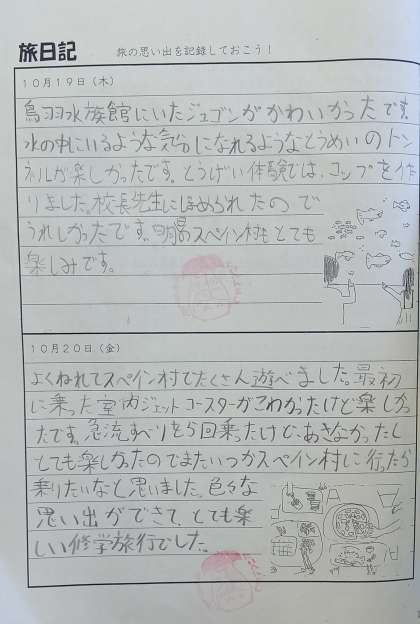 旅日記 旅の思い出を記録しておこう！
10月19日（木）
鳥羽水族館にいたジュゴンがかわいかったです。
水の中にいるような気分になれるようなとうめいのトン
ネルが楽しかったです。とうげい体験では、コップを作
りました。校長先生にほめられたので
うれしかったです。明日のスペイン村もとても
楽しみです。
10月20日（金）
よくねれてスペイン村でたくさん遊べました。最初
に乗った室内ジェットコースターがこわかったけど楽しかっ
たです。急流すべりを5回乗ったけどあきなかったし
とても楽しかったのでまたいつかスペイン村に行ったら
乗りたいなと思いました。色々な
思い出ができて、とても楽
しい修学旅行でした。